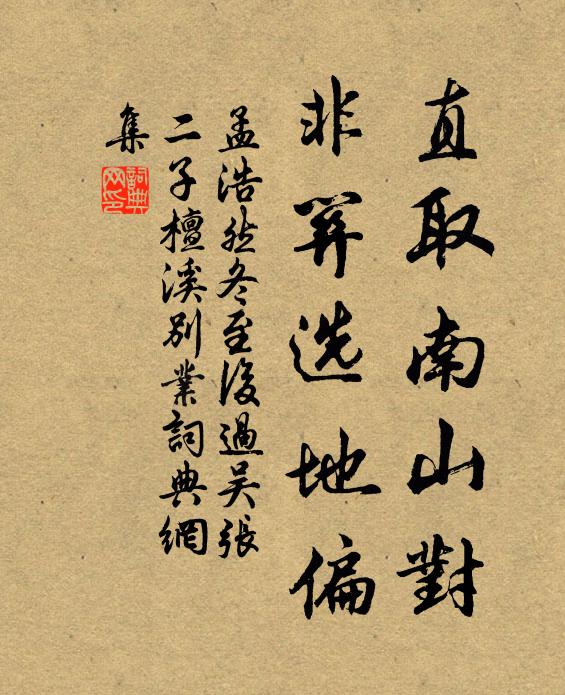 直取南山對
非關选地偏
孟浩然冬至後過吴張
二子檀溪別業詞典網
集
詞典
网印